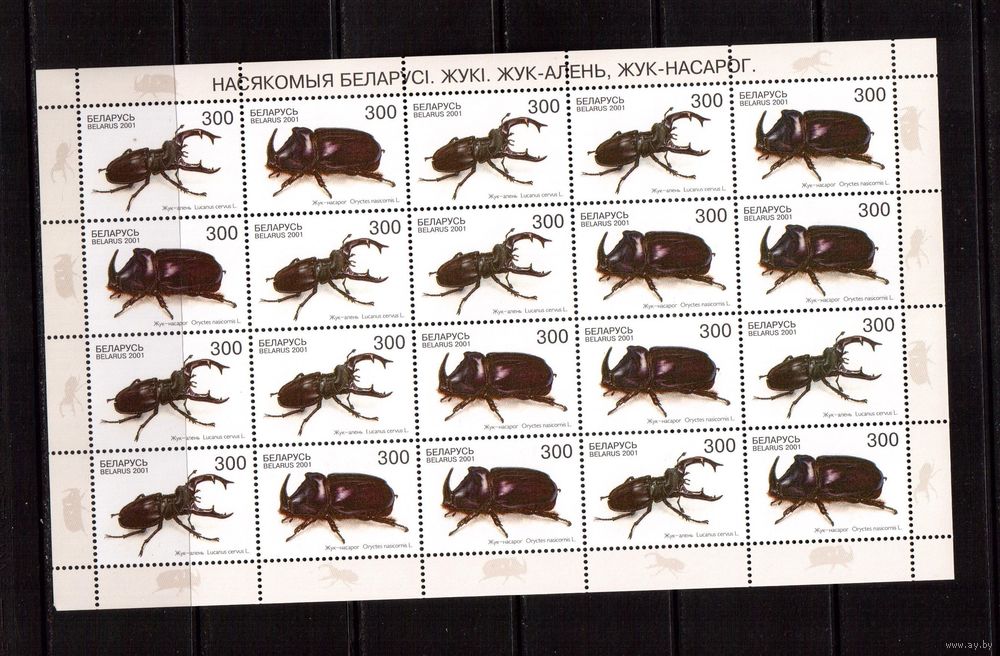 НАСЯКОМЫЯ БЕЛАРУСІ. ЖУКІ. ЖУК-АЛЕНЬ, ЖУК-НАСАРОГ.
БЕЛАРУСЬ 300
BELARUS 2001
Жук-алень Lucanus cervus L.
БЕЛАРУСЬ 300
BELARUS 2001
Жук-насарог Oryctes nasicornis L.
БЕЛАРУСЬ 300
BELARUS 2001
Жук-алень Lucanus cervus L.
БЕЛАРУСЬ 300
BELARUS 2001
Жук-алень Lucanus cervus L.
БЕЛАРУСЬ 300
BELARUS 2001
Жук-насарог Oryctes nasicornis L.
БЕЛАРУСЬ 300
BELARUS 2001
Жук-насарог Oryctes nasicornis L.
БЕЛАРУСЬ 300
BELARUS 2001
Жук-алень Lucanus cervus L.
БЕЛАРУСЬ 300
BELARUS 2001
Жук-алень Lucanus cervus L.
БЕЛАРУСЬ 300
BELARUS 2001
Жук-насарог Oryctes nasicornis L.
БЕЛАРУСЬ 300
BELARUS 2001
Жук-насарог Oryctes nasicornis L.
БЕЛАРУСЬ 300
BELARUS 2001
Жук-алень Lucanus cervus L.
БЕЛАРУСЬ 300
BELARUS 2001
Жук-алень Lucanus cervus L.
БЕЛАРУСЬ 300
BELARUS 2001
Жук-насарог Oryctes nasicornis L.
БЕЛАРУСЬ 300
BELARUS 2001
Жук-насарог Oryctes nasicornis L.
БЕЛАРУСЬ 300
BELARUS 2001
Жук-алень Lucanus cervus L.
БЕЛАРУСЬ 300
BELARUS 2001
Жук-алень Lucanus cervus L.
БЕЛАРУСЬ 300
BELARUS 2001
Жук-насарог Oryctes nasicornis L.
БЕЛАРУСЬ 300
BELARUS 2001
Жук-насарог Oryctes nasicornis L.
БЕЛАРУСЬ 300
BELARUS 2001
Жук-алень Lucanus cervus L.
БЕЛАРУСЬ 300
BELARUS 2001
Жук-насарог Oryctes nasicornis L.
www.ay.by